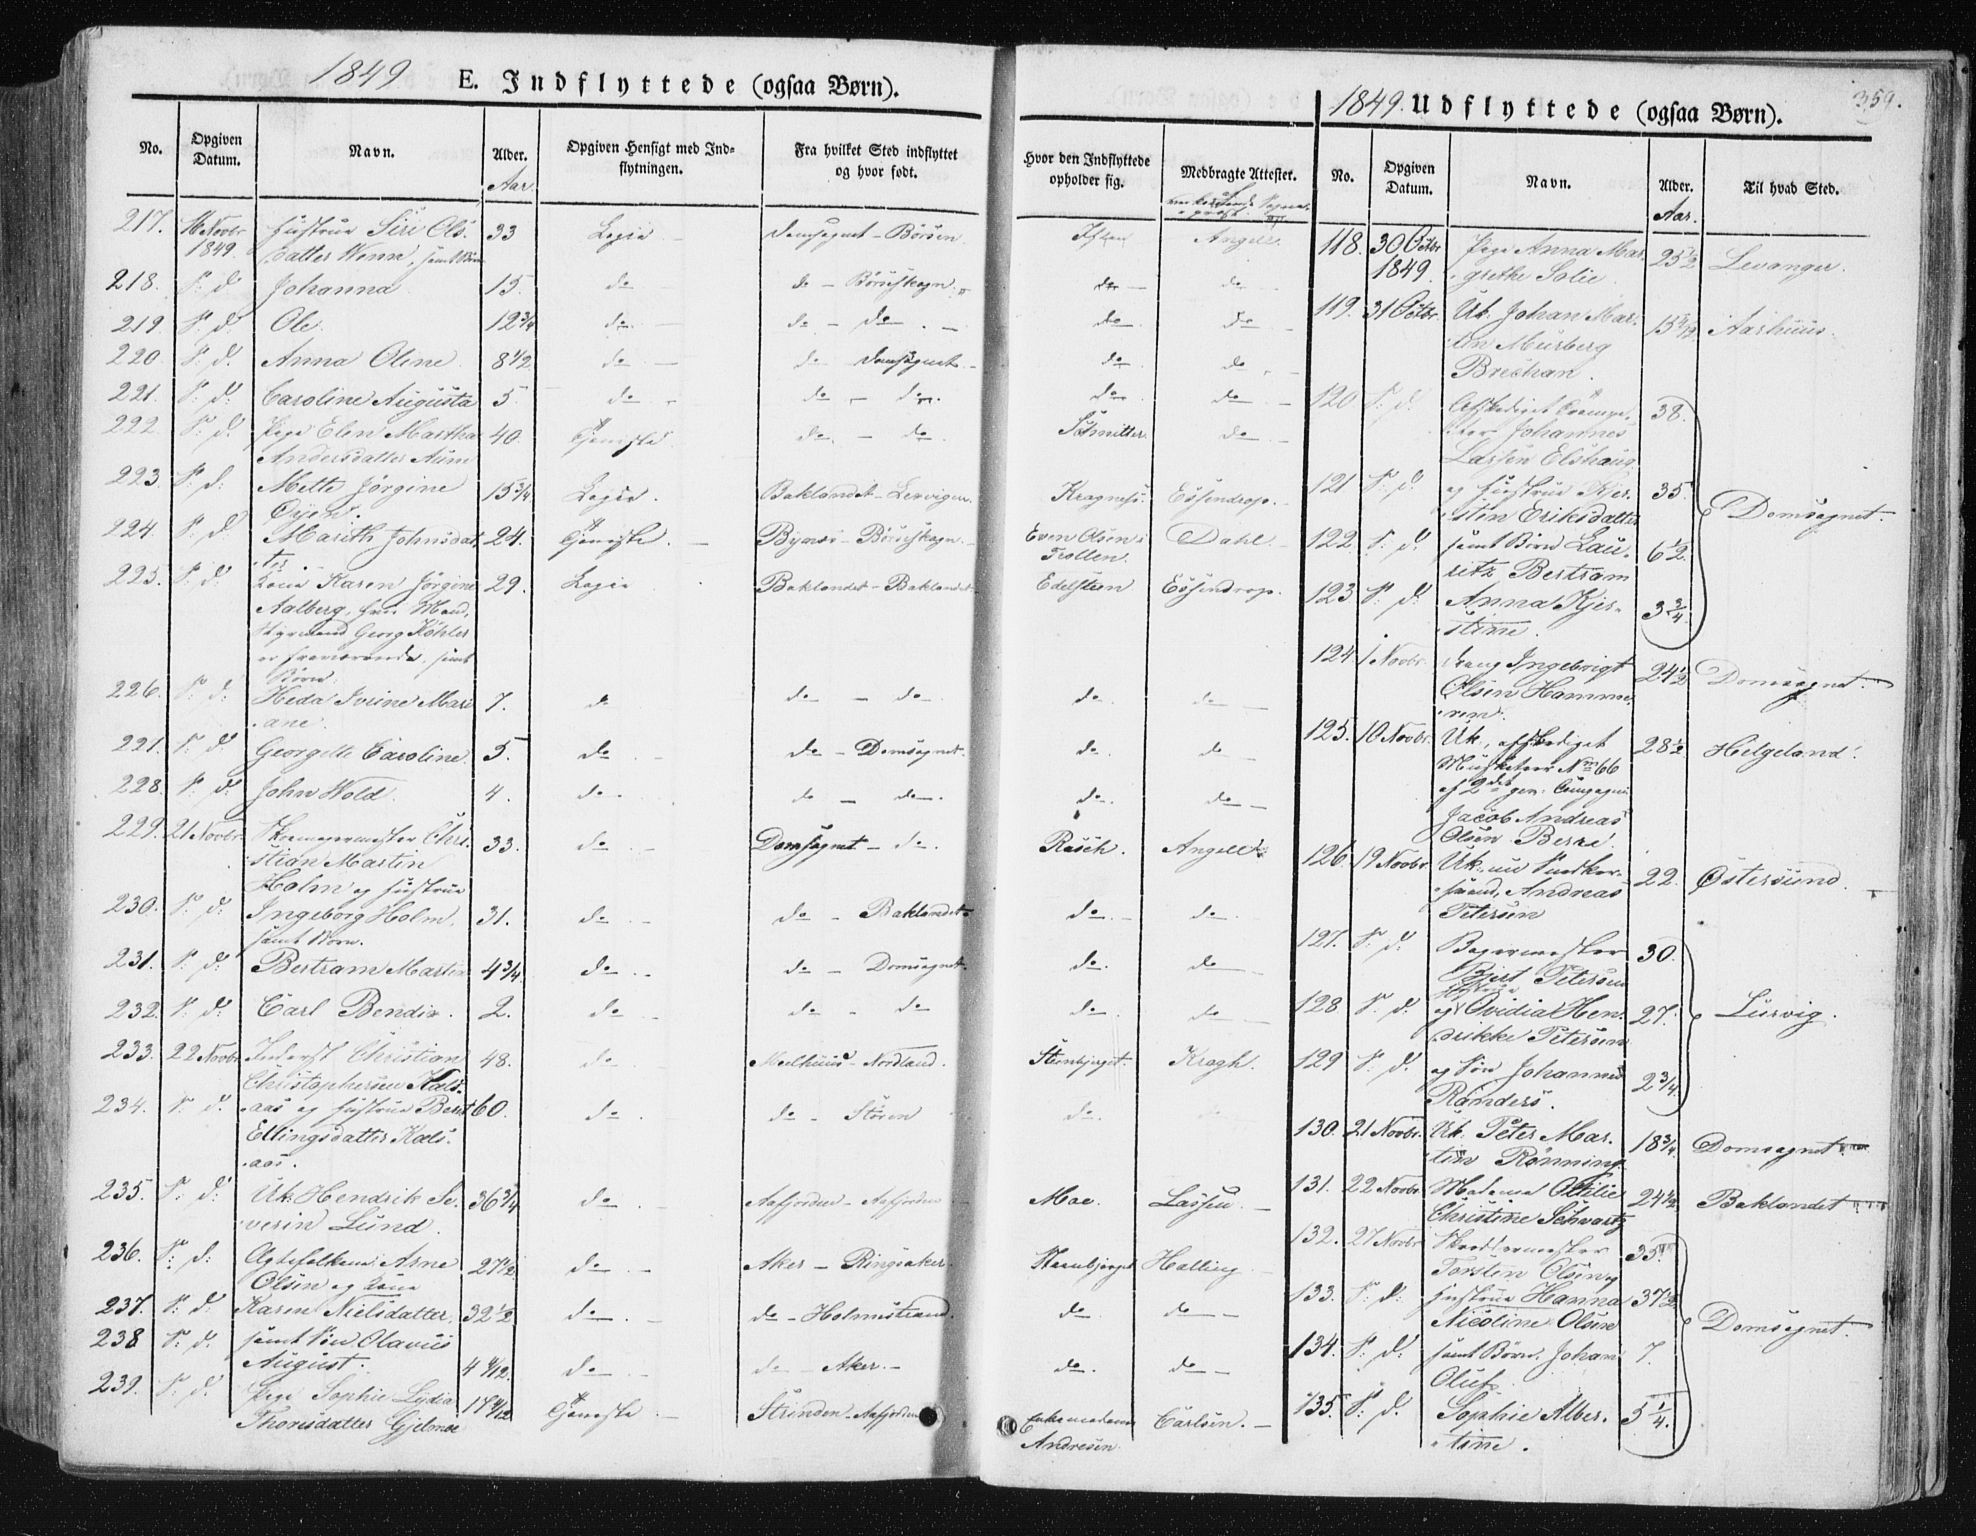 1849 E. Indflyttede (ogsaa Børn).
No. Opgiven Datum. Navn. Alder. Aar. Opgiven Hensigt med Indflytningen. Fra hvilket Sted indflyttet og hvor født. Hvor den Indflyttede opholder sig. Medbragte Attester.
217. 16 Novbr 1849. Hustrue Siri Olsdatter Wenn, samt Børn 33 Logie Domsognet - Börsen Angell
218. S. d. Johanna 15. do do - Börseskogn do do
219 S. d. Ole 12 3/4 do do - do do do
220 S. d. Anna Oline 8 1/2 do do Domsognet do do
221. S. d. Caroline Augusta 5 do do - do do do
222. S. d. Pige Elen Martha Andersdatter Aune 40. Tjeneste do - do Schmitter do
223. S. d. Mette Jörgine Öyen. 15 3/4 Logie Baklandet - Lervigen Kragness. Essendrop.
224. S. d. Marith Johnsdatter. 24. Tjeneste. Bynæs - Börseskogn Even Olsen Trollen. Dahl
225. S. d. Kone Karen Jörgine Aalberg, hvis Mand, Styrmand Georg Köhler er fraværende, samt Börn 29. Logie Baklandet - Baklandet Edelsteen Essendrop.
226. S. d. Heda Ivine Mariane. 7. do do - do do. do
227. S. d. Georgette Caroline 5. do do - Domsognet do. do
228. S. d. John Wold. 4. do do - do do. do
229. 21 Novbr Skomagermester Christian Martin Holm og Hustrue 33. do Domsognet - do. Rasch. Angell
230. S. d. Ingeborg Holm, samt Börn. 31. do do - Baklandet do. do
231. S. d. Bertram Martin 4 3/4. do do - Domsognet do. do
232. S. d. Carl Bendix. 2. do do - do do. do
233. 22 Novbr Inderst Christian Christophersen Kælsaas og Hustrue 48. do Meelhuus - Nordland. Steenbjerget. Kragh.
234. S. d. Berit Ellingsdatter Kælsaas. 60. do do - Stören do.
235. S. d. Uk. Hendrik Severin Lund. 36 3/4 do Aafjorden - Aafjorden Moe. Lassen.
236. S. d. Ægtefolkene Arne Olsen og Kone 27 1/2 do Aker - Ringsaker Steenbjerget Halling
237. S. d. Karen Nielsdatter, 32 1/2 do do - Holmestrand. do do
238 S. d. samt Søn Olavus August. 4 4/12. do do Aker. do. do
239. S. d. Pige Sophie Lydia Thorisdatter Gjelmoe Tjeneste Strinden - Aafjorden Enkemadame Andresen Carlsen.
1849. Udflyttede (ogsaa Børn). 359.
No. Opgiven Datum. Navn. Alder. Aar. Til hvad Sted.
118. 30 Octbr 1849. Pige Anna Margrethe Solie 25 1/2 Levanger.
119. 31 Octbr. Uk. Johan Martin Mürberg Brechan. Aarhuus.
120 S. d. Afskediget Johannes Larsen Elshaug 38.
121 S. d. og Hustrue Kjerstin Eriksdatter 35. Domsognet.
122. S. d. samt Börn Lauritz Bertram 6 1/2.
123 S. d. Anna Kjerstine. 3 3/4.
124 1 Novbr. Dreng Ingebrigt Olsen Hammeren. 24 1/2 Domsognet.
125. 10 Novbr. Uk., afskediget Musketeer No 66 af 2det gev. Compagni Jacob Andreas Olsen Berre. 28 1/2 Helgeland.
126. 19 Novbr Uk. nu Snedkersvend, Andreas Petersen 22. Östersund.
127. S. d. Bagermester Petersen 30.
128. S. d. og Hustrue Ovidia Hendrikke Petersen 27. Lurvig.
129 S. d. og Søn Johannes Randers. 2 3/4.
130. 21 Novbr. Uk. Peter Martin Rönning 18 3/4 Domsognet.
131. 22 Novbr Madame Ottilie Christine Schwartz 24 1/2 Baklandet
132. 27 Novbr Skræddermester Torsten Olsen 35
133. S. d. Hustrue Hanna Nicoline Olsen 37 1/2 Domsognet.
134. S. d. samt Børn, Johan Oluf 7.
135. S. d. Sophie Albertine. 5 1/4.